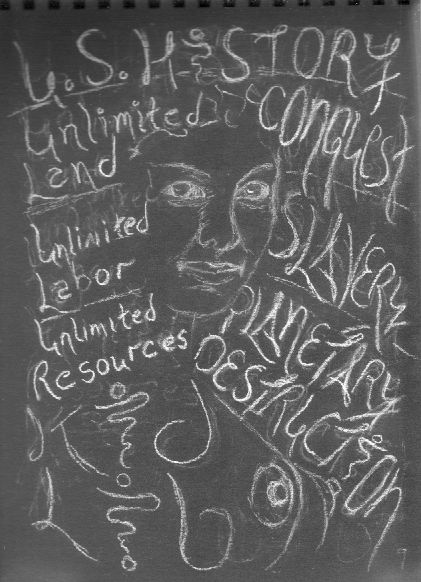 U.S. HISTORY
Unlimited
Land
Unlimited
Labor
Unlimited
Resources
CONQUEST
SLAVERY
PLANETARY
DESTRUCTION